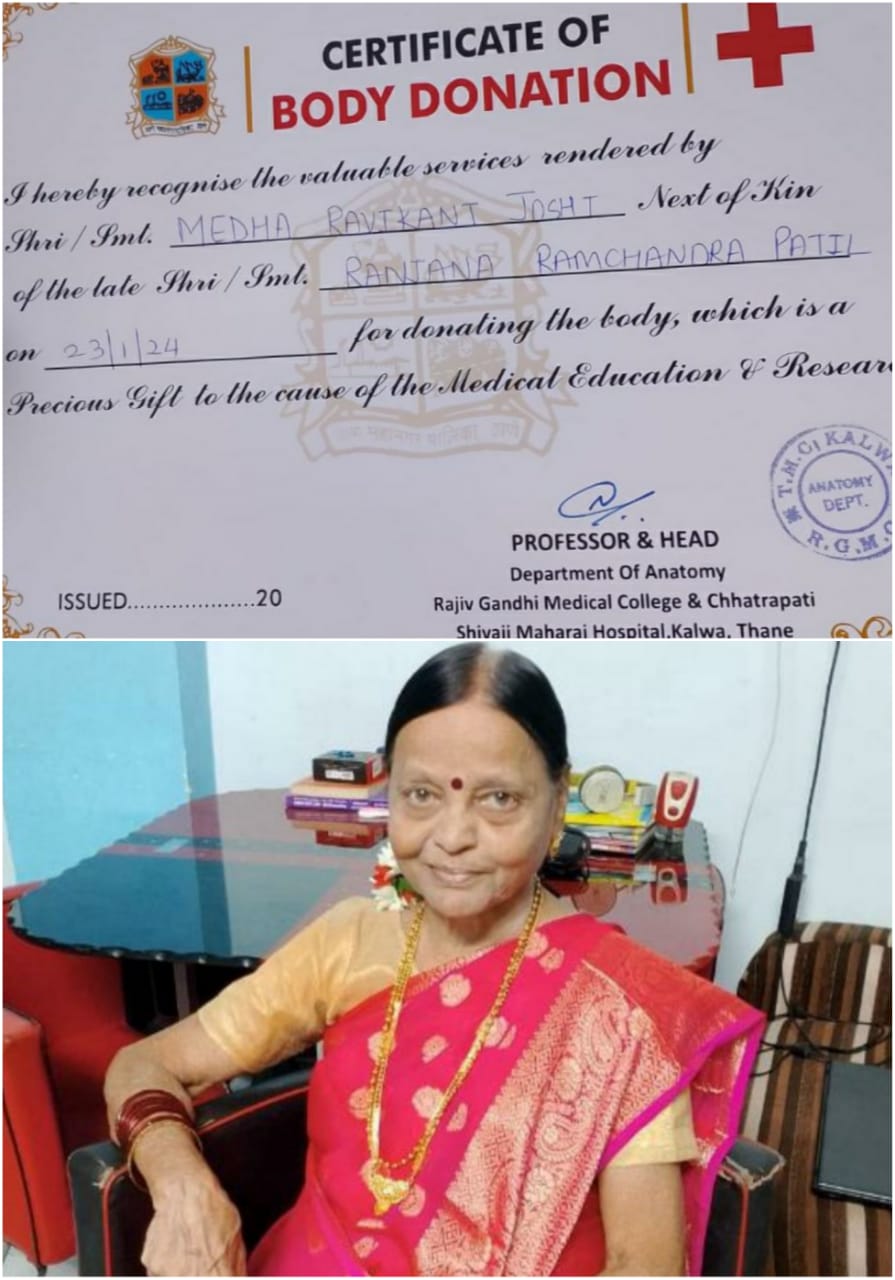 CERTIFICATE OF
BODY DONATION
I hereby recognise the valuable services rendered by
Shri / Smt. MEDHA RAVIKANT JOSHI Next of Kin
of the late Shri / Smt. RANJANA RAMCHANDRA PATIL
on 23/1/24 for donating the body, which is a
Precious Gift to the cause of the Medical Education & Resear
ठाणे महानगर पालिका, ठाणे
T.M.C. KALWA
ANATOMY
DEPT.
R.G.M.C
PROFESSOR & HEAD
Department Of Anatomy
ISSUED....................20
Rajiv Gandhi Medical College & Chhatrapati
Shivaji Maharaj Hospital,Kalwa, Thane